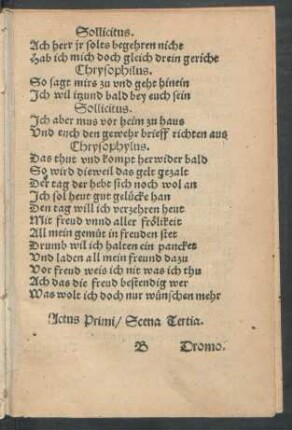 Sollicitus.
Ach herr jr solts begehren nicht
Hab ich mich doch gleich drein gericht
Chrysophilus.
So sagt mirs zu vnd geht hinein
Ich wil itzund bald bey euch sein
Sollicitus.
Ich aber mus vor heim zu haus
Vnd euch den gewehr brieff richten aus
Chrysophylus.
Das thut vnd kompt herwider bald
So wird dieweil das gelt gezalt
Der tag der hebt sich noch wol an
Ich sol heut gut gelücke han
Den tag will ich verzehren heut
Mit freud vnnd aller frölikeit
All mein gemüt in freuden stet
Drumb wil ich halten ein pancket
Vnd laden all mein freund dazu
Vor freud weis ich nit was ich thu
Ach das die freud bestendig wer
Was wolt ich doch nur wünschen mehr
Actus Primi/ Scena Tertia.
B Dromo.